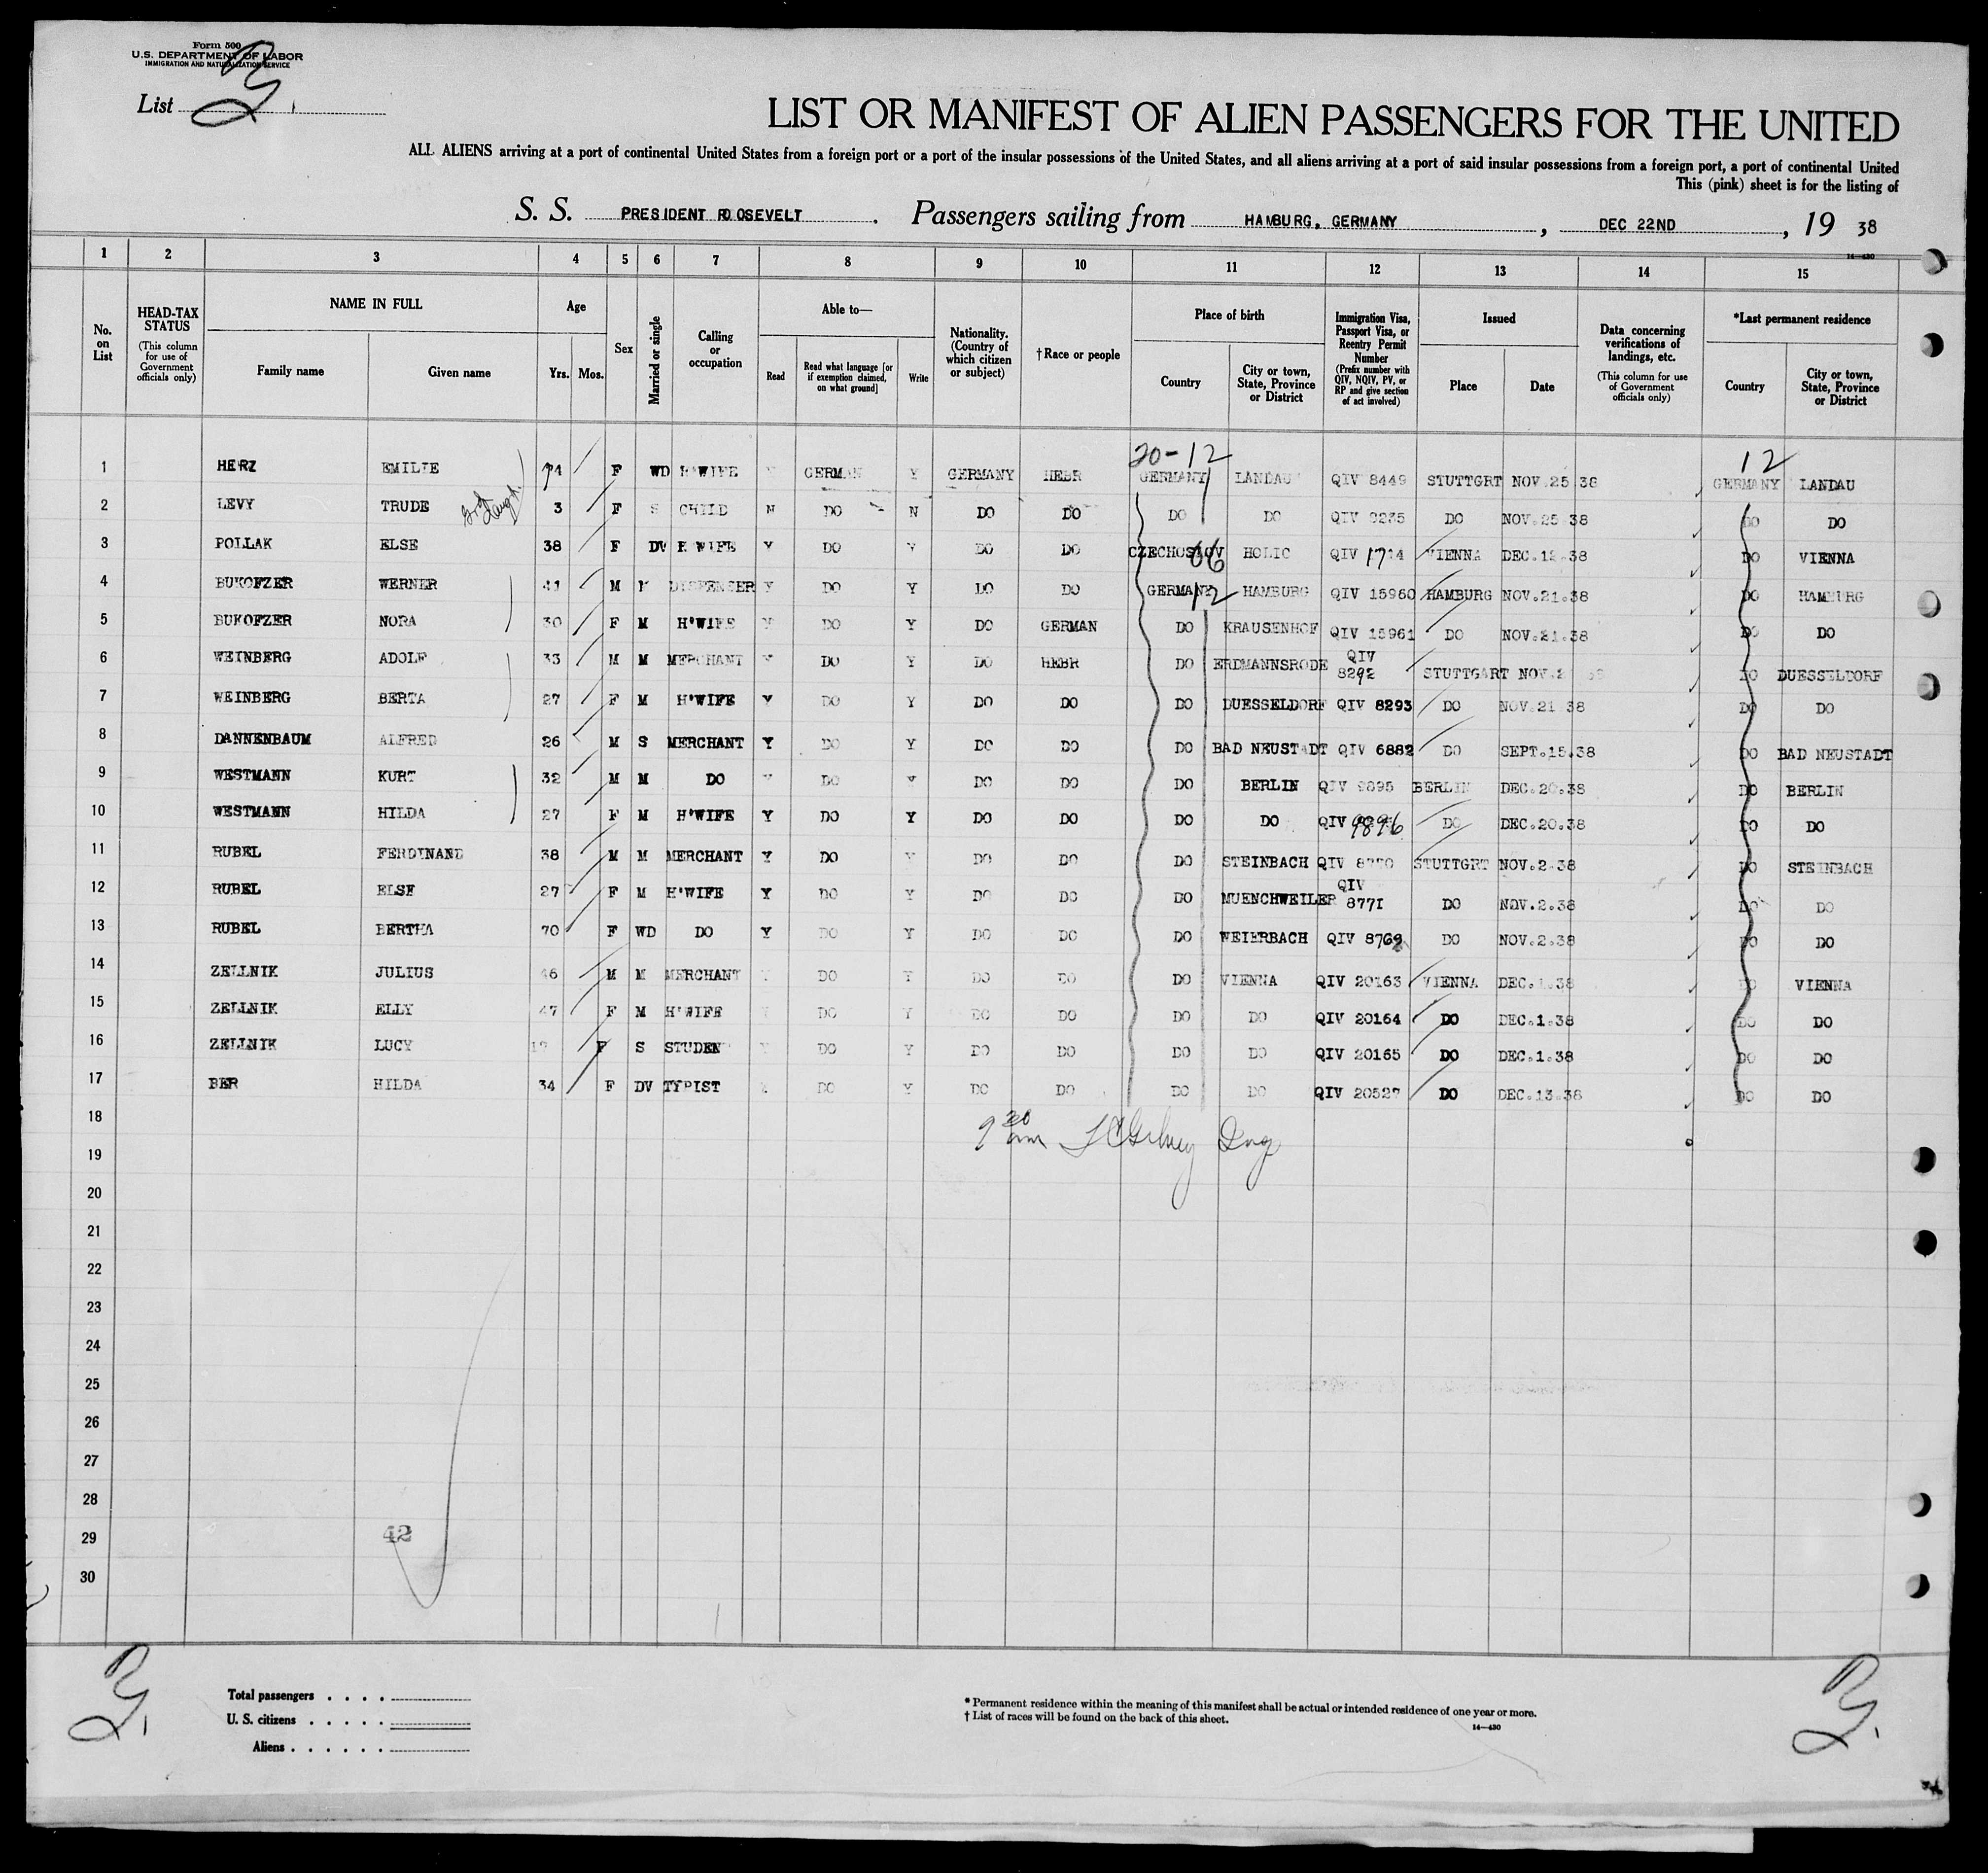 Form 500
U.S. DEPARTMENT OF LABOR
IMMIGRATION AND NATURALIZATION SERVICE
List
LIST OR MANIFEST OF ALIEN PASSENGERS FOR THE UNITED
ALL ALIENS arriving at a port of continental United States from a foreign port or a port of the insular possessions of the United States, and all aliens arriving at a port of said insular possessions from a foreign port, a port of continental United
This (pink) sheet is for the listing of
S. S. PRESIDENT ROOSEVELT. Passengers sailing from HAMBURG, GERMANY, DEC 22ND, 19 38
14—430
1 2 3 4 5 6 7 8 9 10 11 12 13 14 15
No. on List
HEAD-TAX STATUS (This column for use of Government officials only)
NAME IN FULL Family name Given name
Age Yrs. Mos.
Sex
Married or single
Calling or occupation
Able to— Read Read what language [or if exemption claimed, on what ground] Write
Nationality. (Country of which citizen or subject)
†Race or people
Place of birth Country City or town, State, Province or District
Immigration Visa, Passport Visa, or Reentry Permit Number (Prefix number with QIV, NQIV, PV, or RP and give section of act involved)
Issued Place Date
Data concerning verifications of landings, etc. (This column for use of Government officials only)
*Last permanent residence Country City or town, State, Province or District
20-12 12
1 HERZ EMILIE 74 F WD H'WIFE Y GERMAN Y GERMANY HEBR GERMANY LANDAU QIV 8449 STUTTGRT NOV.25.38 GERMANY LANDAU
2 LEVY TRUDE 3 F S CHILD N DO N DO DO DO DO QIV DO NOV.25.38 DO DO
3 POLLAK ELSE 38 F DV H'WIFE Y DO Y DO DO CZECHOSLOV 66 HOLIC QIV 1714 VIENNA DEC.12.38 DO VIENNA
4 BUKOFZER WERNER 41 M M Y DO Y DO DO GERMANY 12 HAMBURG QIV 15960 HAMBURG NOV.21.38 DO HAMBURG
5 BUKOFZER NORA 30 F M H'WIFE Y DO Y DO GERMAN DO KRAUSENHOF QIV 15961 DO NOV.21.38 DO DO
6 WEINBERG ADOLF 33 M M MERCHANT Y DO Y DO HEBR DO ERDMANNSRODE QIV 8292 STUTTGART NOV.2 38 DO DUESSELDORF
7 WEINBERG BERTA 27 F M H'WIFE Y DO Y DO DO DO DUESSELDORF QIV 8293 DO NOV.21 38 DO DO
8 DANNENBAUM ALFRED 26 M S MERCHANT Y DO Y DO DO DO BAD NEUSTADT QIV 6882 DO SEPT.15.38 DO BAD NEUSTADT
9 WESTMANN KURT 32 M M DO Y DO Y DO DO DO BERLIN QIV 9895 BERLIN DEC.20.38 DO BERLIN
10 WESTMANN HILDA 27 F M H'WIFE Y DO Y DO DO DO DO QIV 9896 DO DEC.20.38 DO DO
11 RUBEL FERDINAND 38 M M MERCHANT Y DO Y DO DO DO STEINBACH QIV 8770 STUTTGRT NOV.2.38 DO STEINBACH
12 RUBEL ELSE 27 F M H'WIFE Y DO Y DO DO DO MUENCHWEILER QIV 8771 DO NOV.2.38 DO DO
13 RUBEL BERTHA 70 F WD DO Y DO Y DO DO DO WEIERBACH QIV 8769 DO NOV.2.38 DO DO
14 ZELLNIK JULIUS 46 M M MERCHANT Y DO Y DO DO DO VIENNA QIV 20163 VIENNA DEC.1.38 DO VIENNA
15 ZELLNIK ELLY 47 F M H'WIFE Y DO Y DO DO DO DO QIV 20164 DO DEC.1.38 DO DO
16 ZELLNIK LUCY F S STUDENT Y DO Y DO DO DO DO QIV 20165 DO DEC.1.38 DO DO
17 BER HILDA 34 F DV TYPIST DO Y DO DO DO DO QIV 20527 DO DEC.13.38 DO DO
18
19
20
21
22
23
24
25
26
27
28
29
30
42
Total passengers . . . .
U. S. citizens . . . . .
Aliens . . . . . .
* Permanent residence within the meaning of this manifest shall be actual or intended residence of one year or more.
† List of races will be found on the back of this sheet.
14—430